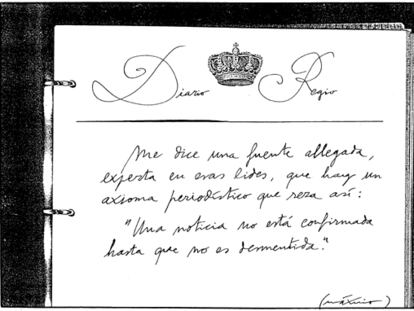 Diario Regio
Me dice una fuente allegada,
experta en esas lides, que hay un
axioma periodístico que reza así:
"Una noticia no está confirmada
hasta que no es desmentida."
(máximo)